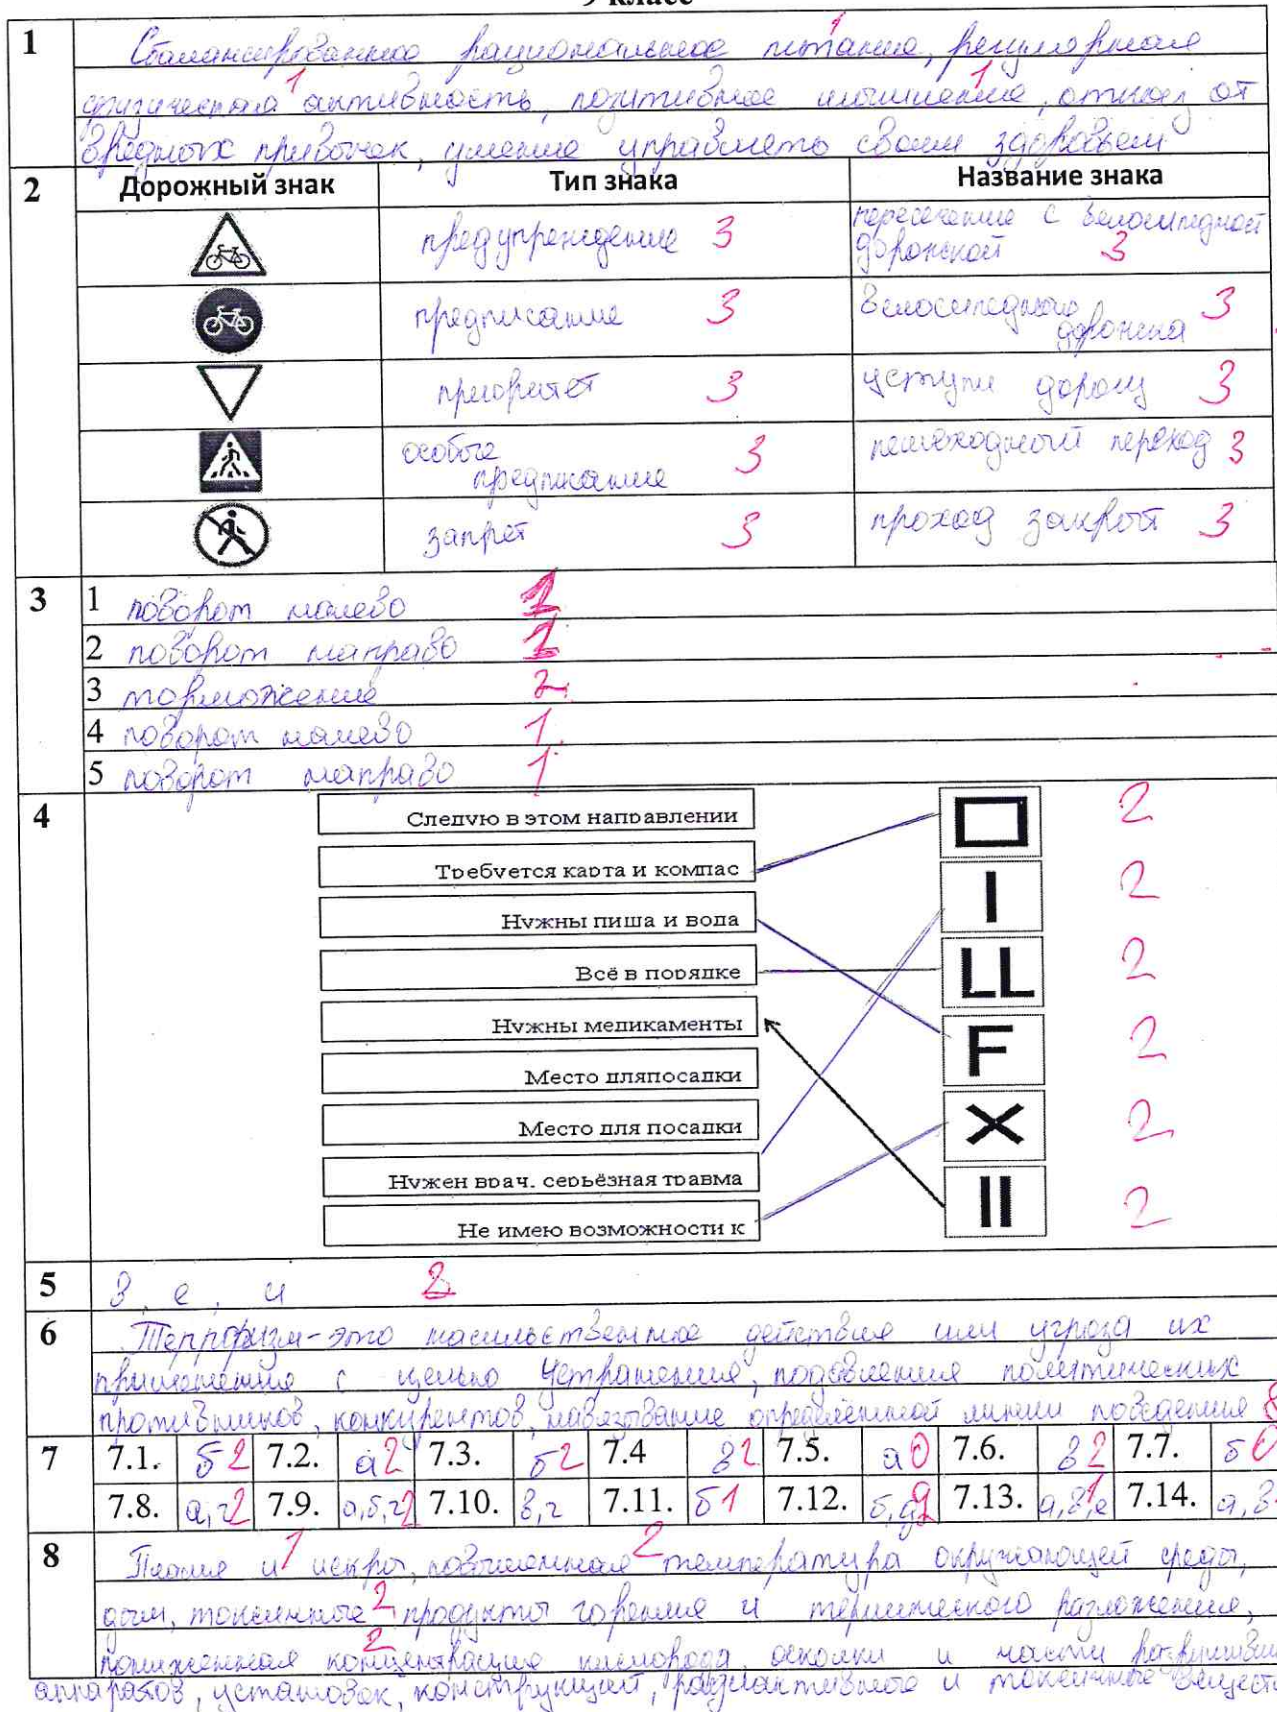 9 класс
1 Сбалансированное рациональное питание, регулярная 1
физическая активность, позитивное мышление, отказ от 1 1
вредных привычек, умение управлять своим здоровьем
2 Дорожный знак Тип знака Название знака
предупреждение 3 пересечение с велосипедной дорожкой 3
предписание 3 велосипедная дорожка 3
приоритет 3 уступи дорогу 3
особое предписание 3 пешеходный переход 3
запрет 3 проход закрыт 3
3 1 поворот налево 1
2 поворот направо 1
3 торможение 2
4 поворот налево 1
5 поворот направо 1
4 Следую в этом направлении 2
Требуется карта и компас
Нужны пища и вода I 2
Всё в порядке LL 2
Нужны медикаменты F 2
Место дляпосадки
Место для посадки X 2
Нужен врач, серьёзная травма II 2
Не имею возможности к
5 з, е, и 2
6 Терроризм-это насильственные действия или угроза их
применения с целью устранения, подавления политических
противников, конкурентов, навязывание определённой линии поведения 8
7 7.1. б 2 7.2. а 2 7.3. б 2 7.4 в 2 7.5. а 0 7.6. в 2 7.7. б 0
7.8. а,г 2 7.9. а,б,г 2 7.10. в,г 7.11. б 1 7.12. б,д 2 7.13. а,в,е 1 7.14. а,в
8 Пламя и искры, повышенная температура окружающей среды, 1 2
дым, токсичные продукты горения и термического разложения, 2
пониженная концентрация кислорода, осколки и части 2
аппаратов, установок, конструкций, радиоактивные и токсичные